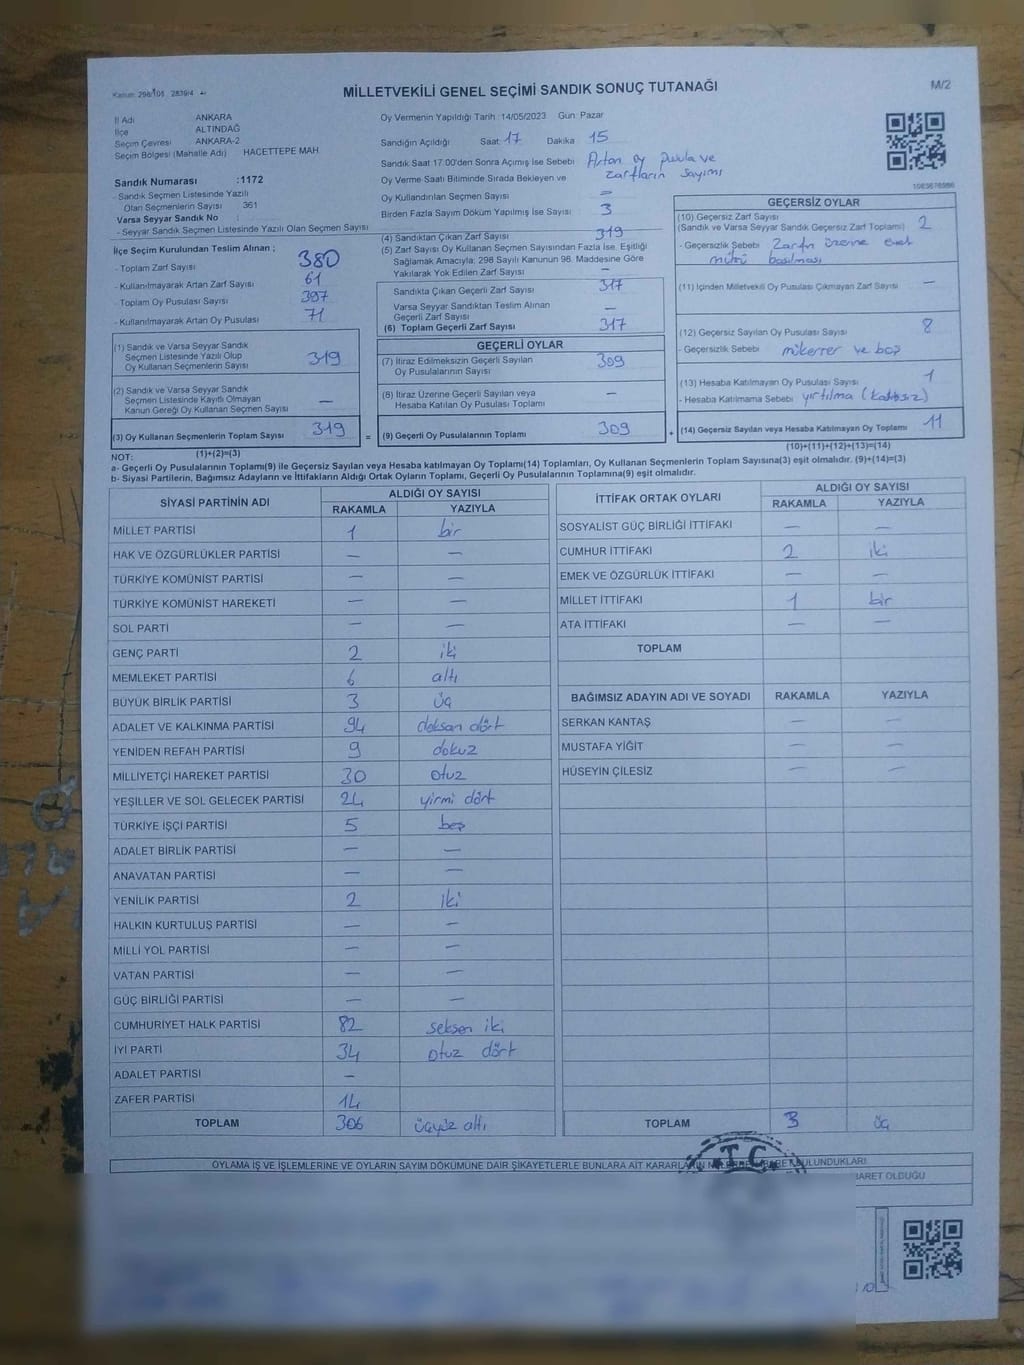 Kanun: 298/101 2839/4
MİLLETVEKİLİ GENEL SEÇİMİ SANDIK SONUÇ TUTANAĞI
M/2
İl Adı ANKARA
İlçe ALTINDAĞ
Seçim Çevresi ANKARA-2
Seçim Bölgesi (Mahalle Adı) HACETTEPE MAH.
Oy Vermenin Yapıldığı Tarih : 14/05/2023 Gün: Pazar
Sandığın Açıldığı Saat 17 Dakika 15
Sandık Saat 17.00'den Sonra Açımış İse Sebebi Artan oy pusula ve
zarfların sayımı
Oy Verme Saati Bitiminde Sırada Bekleyen ve
Oy Kullandırılan Seçmen Sayısı —
Birden Fazla Sayım Döküm Yapılmış İse Sayısı 3
Sandık Numarası :1172
- Sandık Seçmen Listesinde Yazılı
Olan Seçmenlerin Sayısı 361
Varsa Seyyar Sandık No :
- Seyyar Sandık Seçmen Listesinde Yazılı Olan Seçmen Sayısı
İlçe Seçim Kurulundan Teslim Alınan ;
- Toplam Zarf Sayısı 380
- Kullanılmayarak Artan Zarf Sayısı 61
- Toplam Oy Pusulası Sayısı 397
- Kullanılmayarak Artan Oy Pusulası 71
(1) Sandık ve Varsa Seyyar Sandık
Seçmen Listesinde Yazılı Olup
Oy Kullanan Seçmenlerin Sayısı 319
(2) Sandık ve Varsa Seyyar Sandık
Seçmen Listesinde Kayıtlı Olmayan
Kanun Gereği Oy Kullanan Seçmen Sayısı —
(3) Oy Kullanan Seçmenlerin Toplam Sayısı 319 =
(1)+(2)=(3)
(4) Sandıktan Çıkan Zarf Sayısı 319
(5) Zarf Sayısı Oy Kullanan Seçmen Sayısından Fazla İse, Eşitliği
Sağlamak Amacıyla; 298 Sayılı Kanunun 98. Maddesine Göre
Yakılarak Yok Edilen Zarf Sayısı —
Sandıkta Çıkan Geçerli Zarf Sayısı 317
Varsa Seyyar Sandıktan Teslim Alınan
Geçerli Zarf Sayısı —
(6) Toplam Geçerli Zarf Sayısı 317
GEÇERLİ OYLAR
(7) İtiraz Edilmeksizin Geçerli Sayılan
Oy Pusulalarının Sayısı 309
(8) İtiraz Üzerine Geçerli Sayılan veya
Hesaba Katılan Oy Pusulası Toplamı —
(9) Geçerli Oy Pusulalarının Toplamı 309 +
1083676986
GEÇERSİZ OYLAR
(10) Geçersiz Zarf Sayısı
(Sandık ve Varsa Seyyar Sandık Geçersiz Zarf Toplamı) 2
- Geçersizlik Sebebi Zarfın üzerine evet
mührü basılması
(11) İçinden Milletvekili Oy Pusulası Çıkmayan Zarf Sayısı —
(12) Geçersiz Sayılan Oy Pusulası Sayısı 8
- Geçersizlik Sebebi mükerrer ve boş
(13) Hesaba Katılmayan Oy Pusulası Sayısı 1
- Hesaba Katılmama Sebebi yırtılma
(14) Geçersiz Sayılan veya Hesaba Katılmayan Oy Toplamı 11
(10)+(11)+(12)+(13)=(14)
NOT:
a- Geçerli Oy Pusulalarının Toplamı(9) ile Geçersiz Sayılan veya Hesaba katılmayan Oy Toplamı(14) Toplamları, Oy Kullanan Seçmenlerin Toplam Sayısına(3) eşit olmalıdır. (9)+(14)=(3)
b- Siyasi Partilerin, Bağımsız Adayların ve İttifakların Aldığı Ortak Oyların Toplamı, Geçerli Oy Pusulalarının Toplamına(9) eşit olmalıdır.
SİYASİ PARTİNİN ADI ALDIĞI OY SAYISI
RAKAMLA YAZIYLA
MİLLET PARTİSİ 1 bir
HAK VE ÖZGÜRLÜKLER PARTİSİ — —
TÜRKİYE KOMÜNİST PARTİSİ — —
TÜRKİYE KOMÜNİST HAREKETİ — —
SOL PARTİ — —
GENÇ PARTİ 2 iki
MEMLEKET PARTİSİ 6 altı
BÜYÜK BİRLİK PARTİSİ 3 üç
ADALET VE KALKINMA PARTİSİ 94 doksan dört
YENİDEN REFAH PARTİSİ 9 dokuz
MİLLİYETÇİ HAREKET PARTİSİ 30 otuz
YEŞİLLER VE SOL GELECEK PARTİSİ 24 yirmi dört
TÜRKİYE İŞÇİ PARTİSİ 5 beş
ADALET BİRLİK PARTİSİ — —
ANAVATAN PARTİSİ — —
YENİLİK PARTİSİ 2 iki
HALKIN KURTULUŞ PARTİSİ — —
MİLLİ YOL PARTİSİ — —
VATAN PARTİSİ — —
GÜÇ BİRLİĞİ PARTİSİ — —
CUMHURİYET HALK PARTİSİ 82 seksen iki
İYİ PARTİ 34 otuz dört
ADALET PARTİSİ —
ZAFER PARTİSİ 14
TOPLAM 306 üçyüz altı
İTTİFAK ORTAK OYLARI ALDIĞI OY SAYISI
RAKAMLA YAZIYLA
SOSYALİST GÜÇ BİRLİĞİ İTTİFAKI — —
CUMHUR İTTİFAKI 2 iki
EMEK VE ÖZGÜRLÜK İTTİFAKI — —
MİLLET İTTİFAKI 1 bir
ATA İTTİFAKI — —
TOPLAM
BAĞIMSIZ ADAYIN ADI VE SOYADI RAKAMLA YAZIYLA
SERKAN KANTAŞ — —
MUSTAFA YİĞİT — —
HÜSEYİN ÇİLESİZ — —
TOPLAM 3 üç
OYLAMA İŞ VE İŞLEMLERİNE VE OYLARIN SAYIM DÖKÜMÜNE DAİR ŞİKAYETLERLE BUNLARA AİT KARARLARIN
BULUNDUKLARI
T.C.
İBARET OLDUĞU